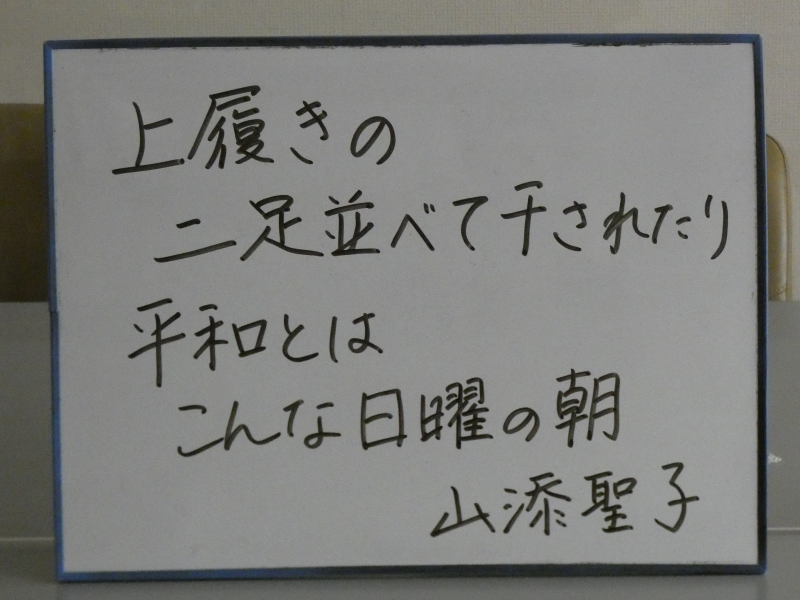 上履きの
二足並べて干されたり
平和とは
こんな日曜の朝
山添聖子